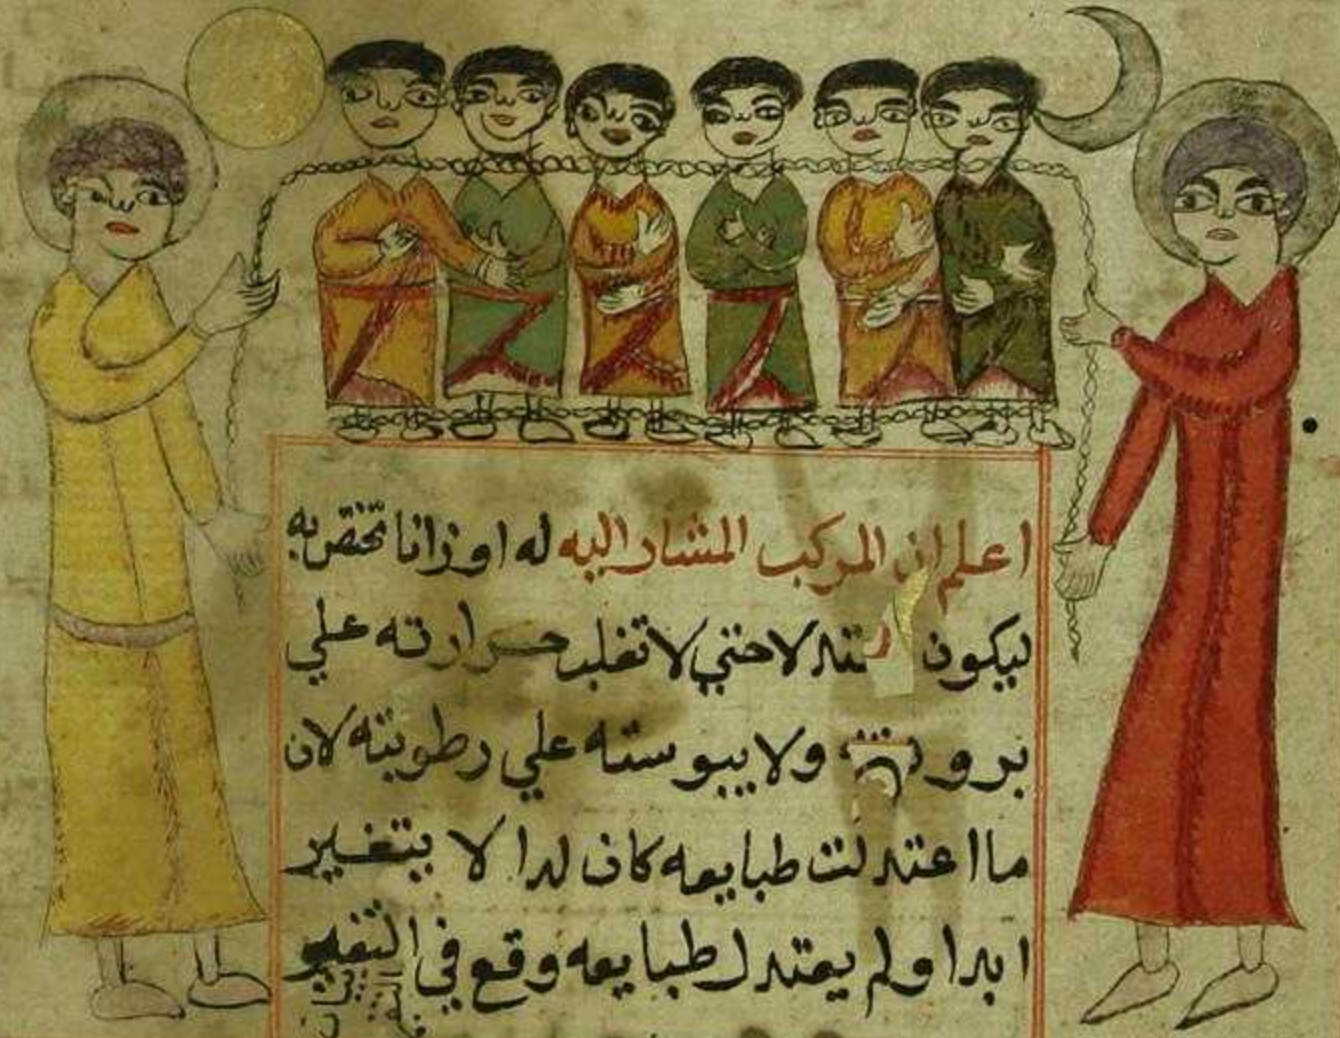 اعلم ان المركب المشار اليه له اوزانا تختص به
ليكون لا حتي لا تغلب حرارته علي
ولا يبوسته علي رطوبته لان
ما اعتدلت طبايعه كان لدا لا يتغير
ابدا ولم يعتدل طبايعه وقع في التغير